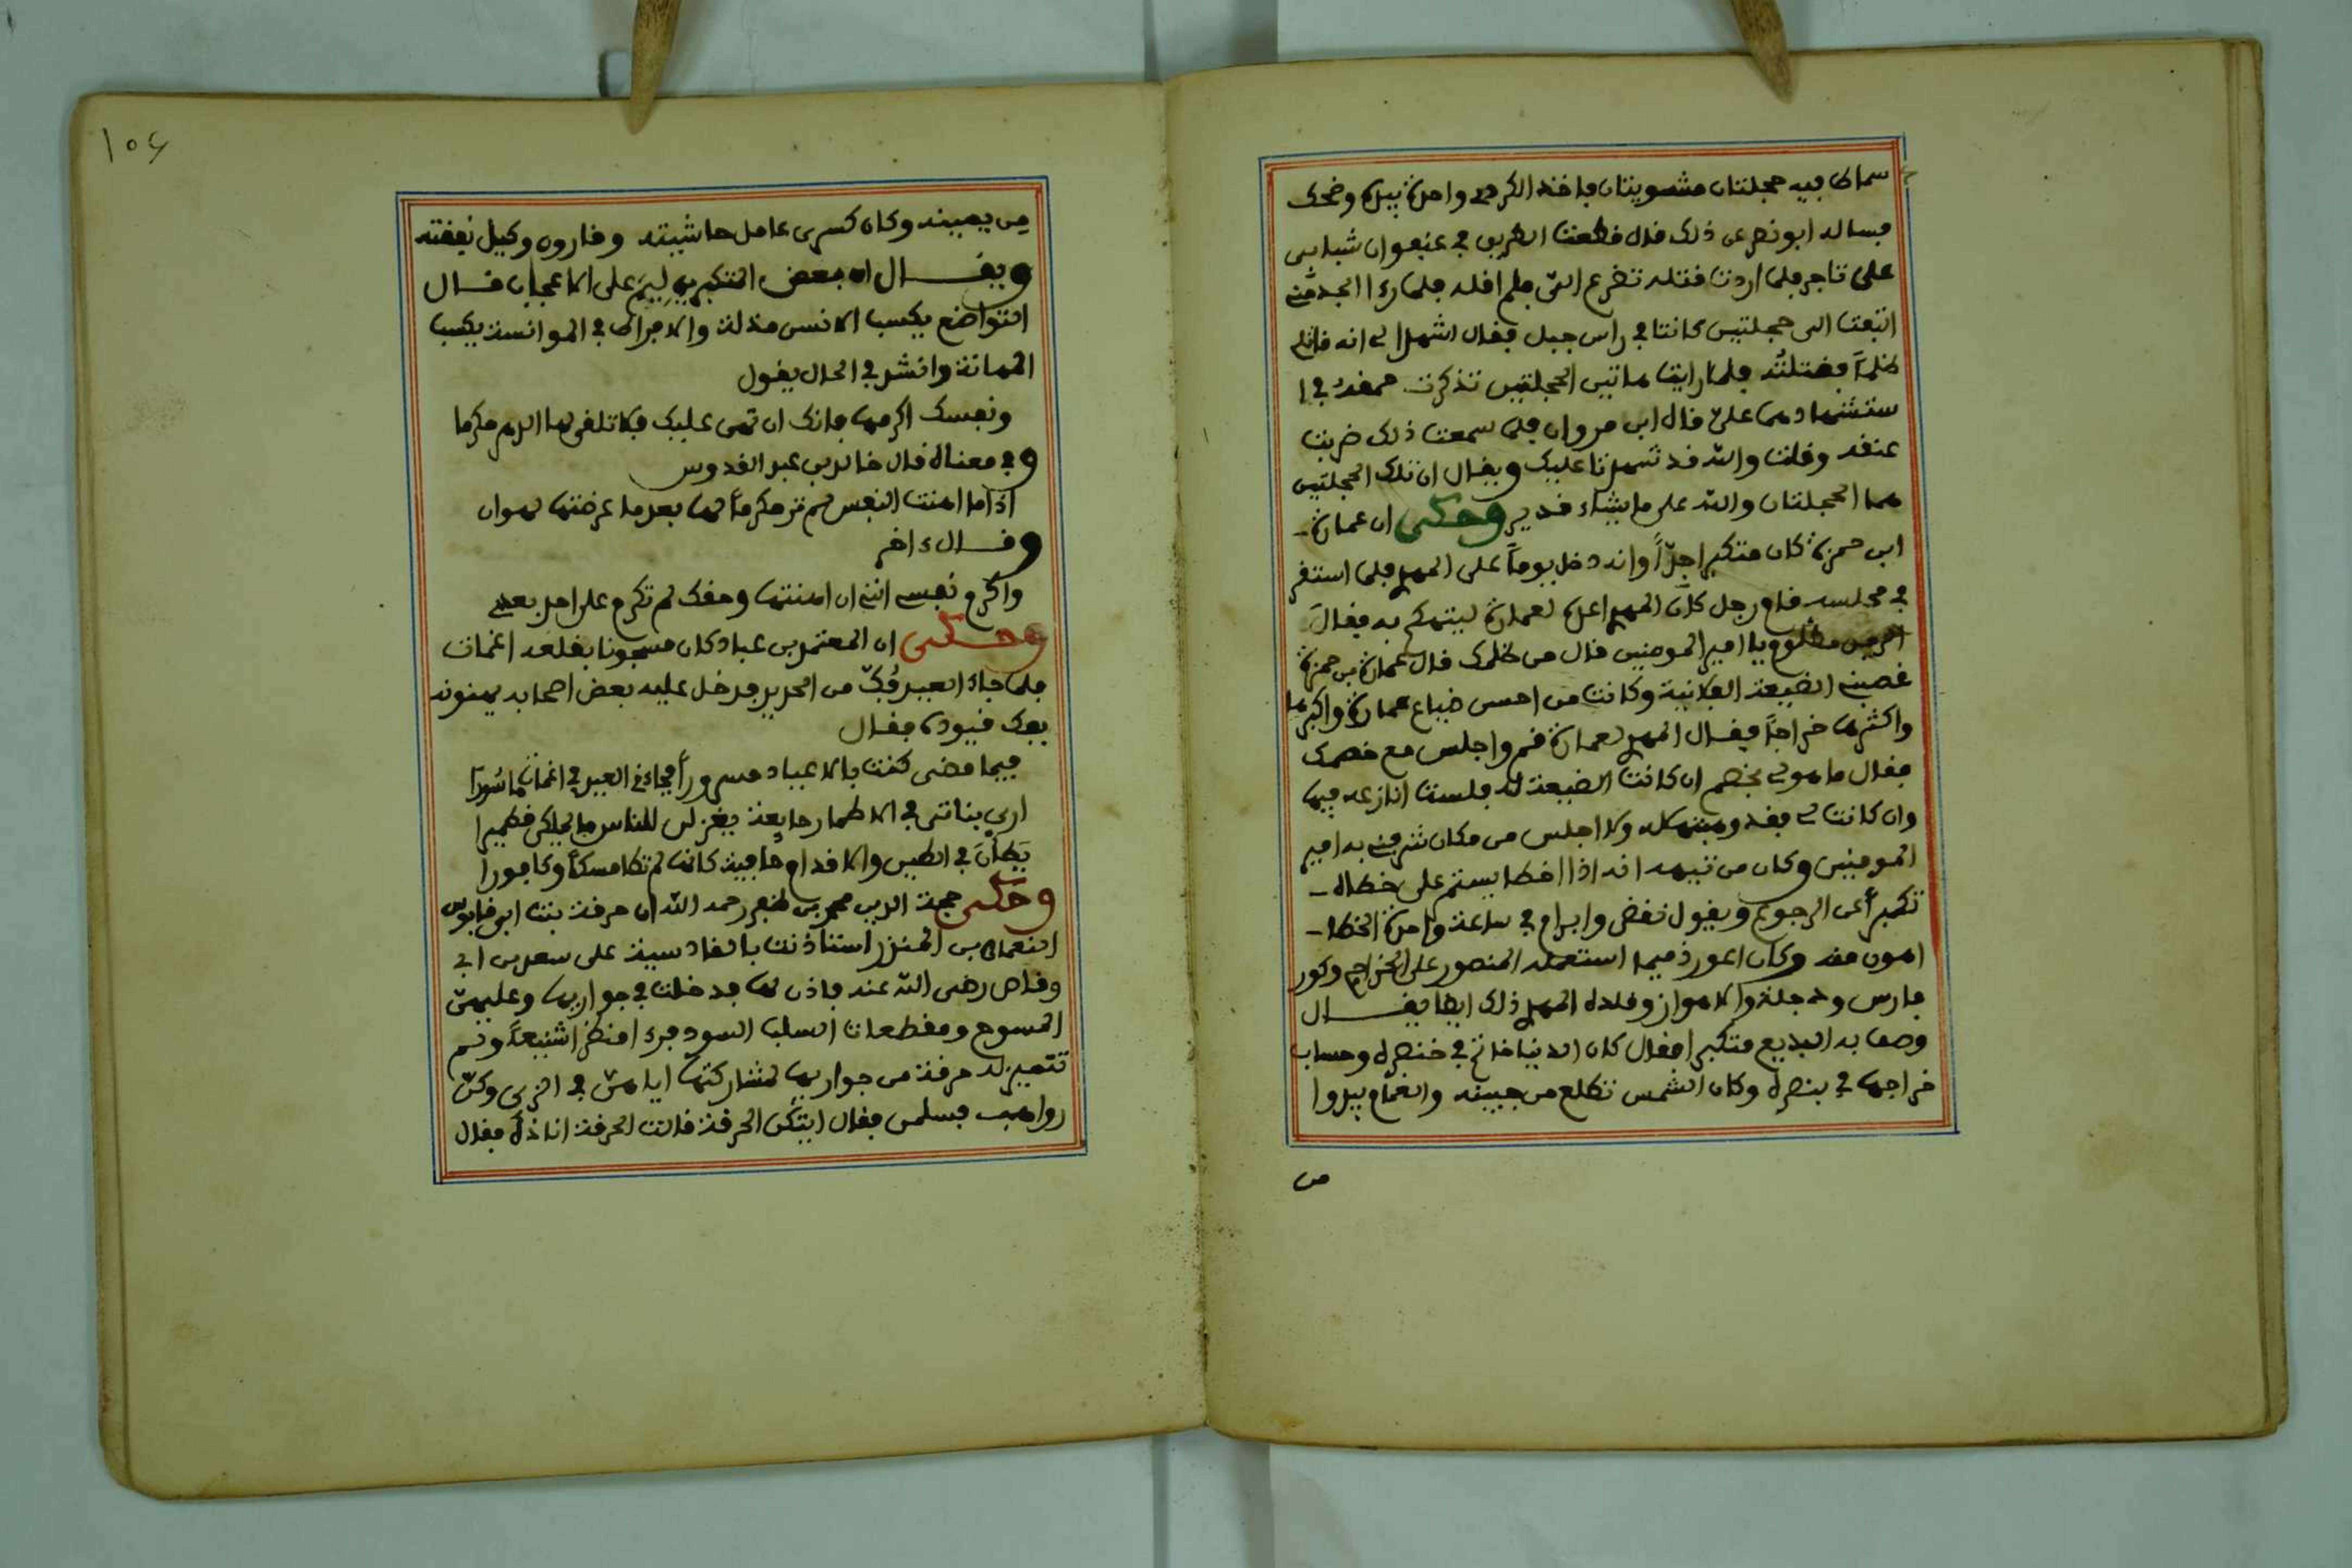 سماط فيه حجلتان مشويتان فاخذ الكردي واحدة بيده وضحك
فساله ابو نصر عن ذلك قال قطعت الطريق في عنفوان شبابي
على تاجر فلما اردت قتله تضرع التي فلم اقله فلما رءا الجد مني
التفت الى حجلتين كانتا في راس جبل فقال اشهدا لي انه قاتلي
ظلماً فقتلته فلما رايت هاتين الحجلتين تذكرت حمقه في ا
ستشهادهما علي قال ابن مروان فلما سمعت ذلك ضربت
عنقه وقلت والله قد تشهدتا عليك ويقال ان تلك الحجلتين
هما الحجلتان والله على ما يشاء قدير وحكى ان عمارة
ابن حمزة كان متكبرا جدّاً وانه دخل يوماً على المهدي فلما استقر
في مجلسه قام رجل كان المهدي اعده لعمارة ليتهكم به فقال
مظلوم يا امير المومنين قال من ظلمك قال عمارة بن حمزة
غصبني الضيعة الفلانية وكانت من احسن ضياع عمارة واكبرها
واكثرها خراجاً فقال المهدي لعمارة قم واجلس مع خصمك
فقال ما هو لي بخصم ان كانت الضيعة له فلست انازعه فيها
وان كانت لي فقد وهبتها له ولا اجلس من مكان شرفني به امير
المومنين وكان من تيهه انه اذا اخطا يستمر على خطاه
تكبراً عن الرجوع ويقول نقض وابرام في ساعة واحدة الخطا
اهون منه وكان اعور ذميما استعمله المنصور على الخراج وكور
فارس ودجلة والاهواز وقلده المهدي ذلك ايضا يقــال
وصف به البديع متكبرا فقال كان الدنيا خاتم في خنصره وحساب
خراجها في بنصره وكان الشمس تطلع من جبينه والغمام يبدوا
من
١٠٤
من يمينه وكان كسرى عامل حاشيته وقارون وكيل نفقته
ويقــال ان بعض المتكبرين ليم على الاعجاب قــال
التواضع يكسب الانس مذلة والافراط في الموانسة يكسب
المهانة وانشد في الحال يقول
ونفسك اكرمها فانك ان تهن عليك فلا تلقى لها الدهر مكرما
وفي معناه قال خالد بن عبد القدوس
اذا ما اهنت النفس لم تر مكرماً لها بعد ما عرضتها لهوان
وقــال ءاخر
واكرم نفسي انني ان اهنتها وحقك لم تكرم على احد بعدي
وحكى ان المعتمد بن عباد كان مسجونا بقلعة اغمات
فلما جاء العيد فُكّ من الحديد فدخل عليه بعض اصحابه يهنونه
بفك قيوده فقال
فيما مضى كنت بالاعياد مسروراً فجاءني العيد في اغمات ماسُورا
ارى بناتي في الاطمار جايعة يغزلن للناس ما يملكن قطميرا
يَطَأنَ في الطين والاقدام حافية كانها لم تطا مسكاً وكافورا
وحكى حجة الدين محمد بن ظفر رحمه الله ان حرقة بنت ابي قابوس
النعمان بن المنذر استاذنت بالقادسية على سعد بن ابي
وقاص رضي الله عنه فاذن لها فدخلت في جواريها وعليهن
المسوح ومقطعات السلب السود فرءا منظرا شنيعاً ولم
تتميز له حرقة من جواريها لمشاركتها اياهن في الزي وكن
رواهب فسلمن فقال ايتكن الحرقة قالت الحرقة انا ذه فقال